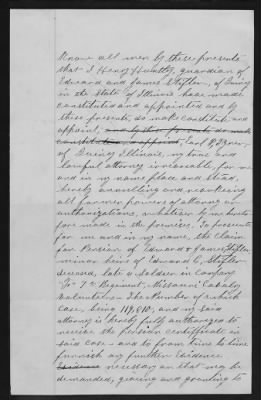 Know all men by these presents
that I Henry Huntly, guardian of
Edward and James Stifler, of Quincy
in the State of Illinois have made
constituted and appointed and by
these presents, do make constitute and
appoint, and by these presents do make
constitute & appoint, Earl
of Quincy Illinois, my true and
lawful attorney irrevocable, for me
and in my name place and stead,
hereby annulling and revoking
all former powers of attorney or
authorizations, whatever by me hereto-
fore made in the premises, to prosecute
for me and in my name, the claim
for Pension of Edward & James Stifler
minor heirs of Edward C. Stifler
deceased, late a Soldier in Company
7th Regiment, Missouri Cavalry
Volunteers - The Number of which
case, being 119,810, and my said
attorney is hereby fully authorized to
receive the pension certificate in
said case - and to from time to time
furnish any further Evidence
Evidence necessary or that may be
demanded, giving and granting to